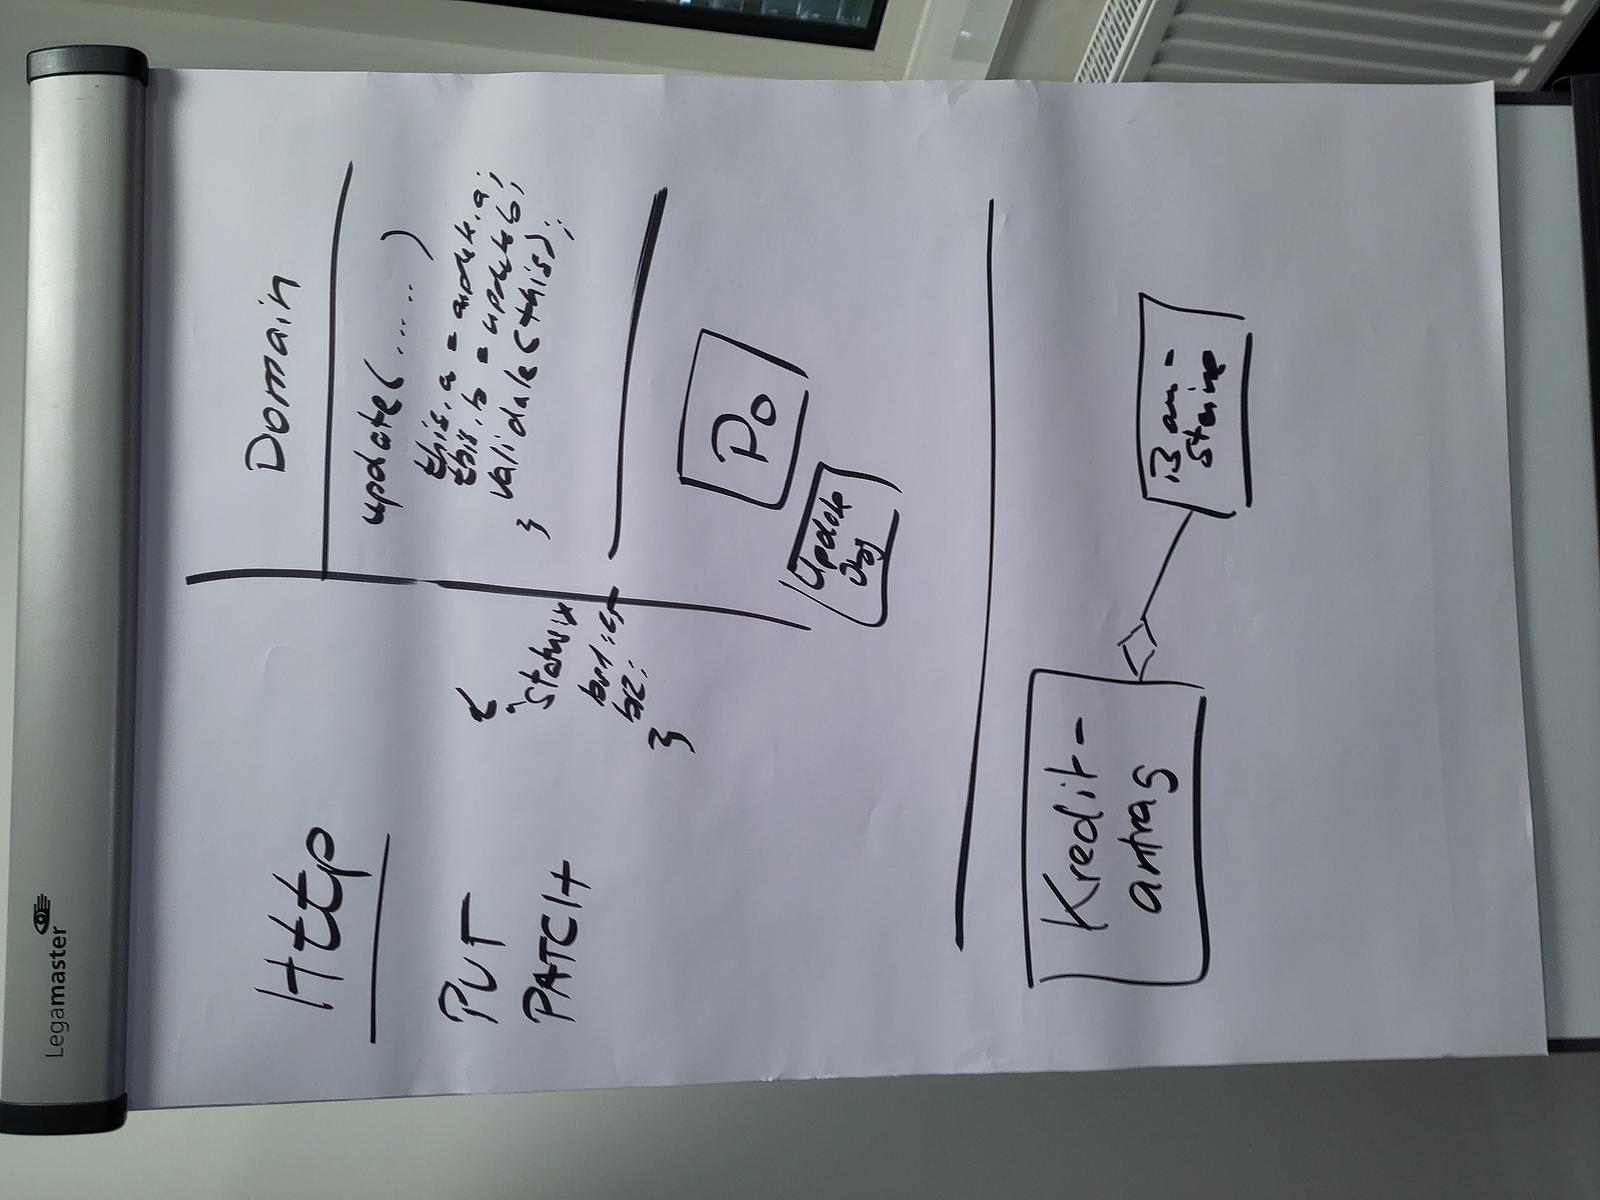 Legamaster
Http
PUT
PATCH
{
}
Domain
update(..... )
this.a = update.a;
this.b = update.b;
validate(this);
}
Do
Update
Obj
Kredit-
antrag
Bau-
steine